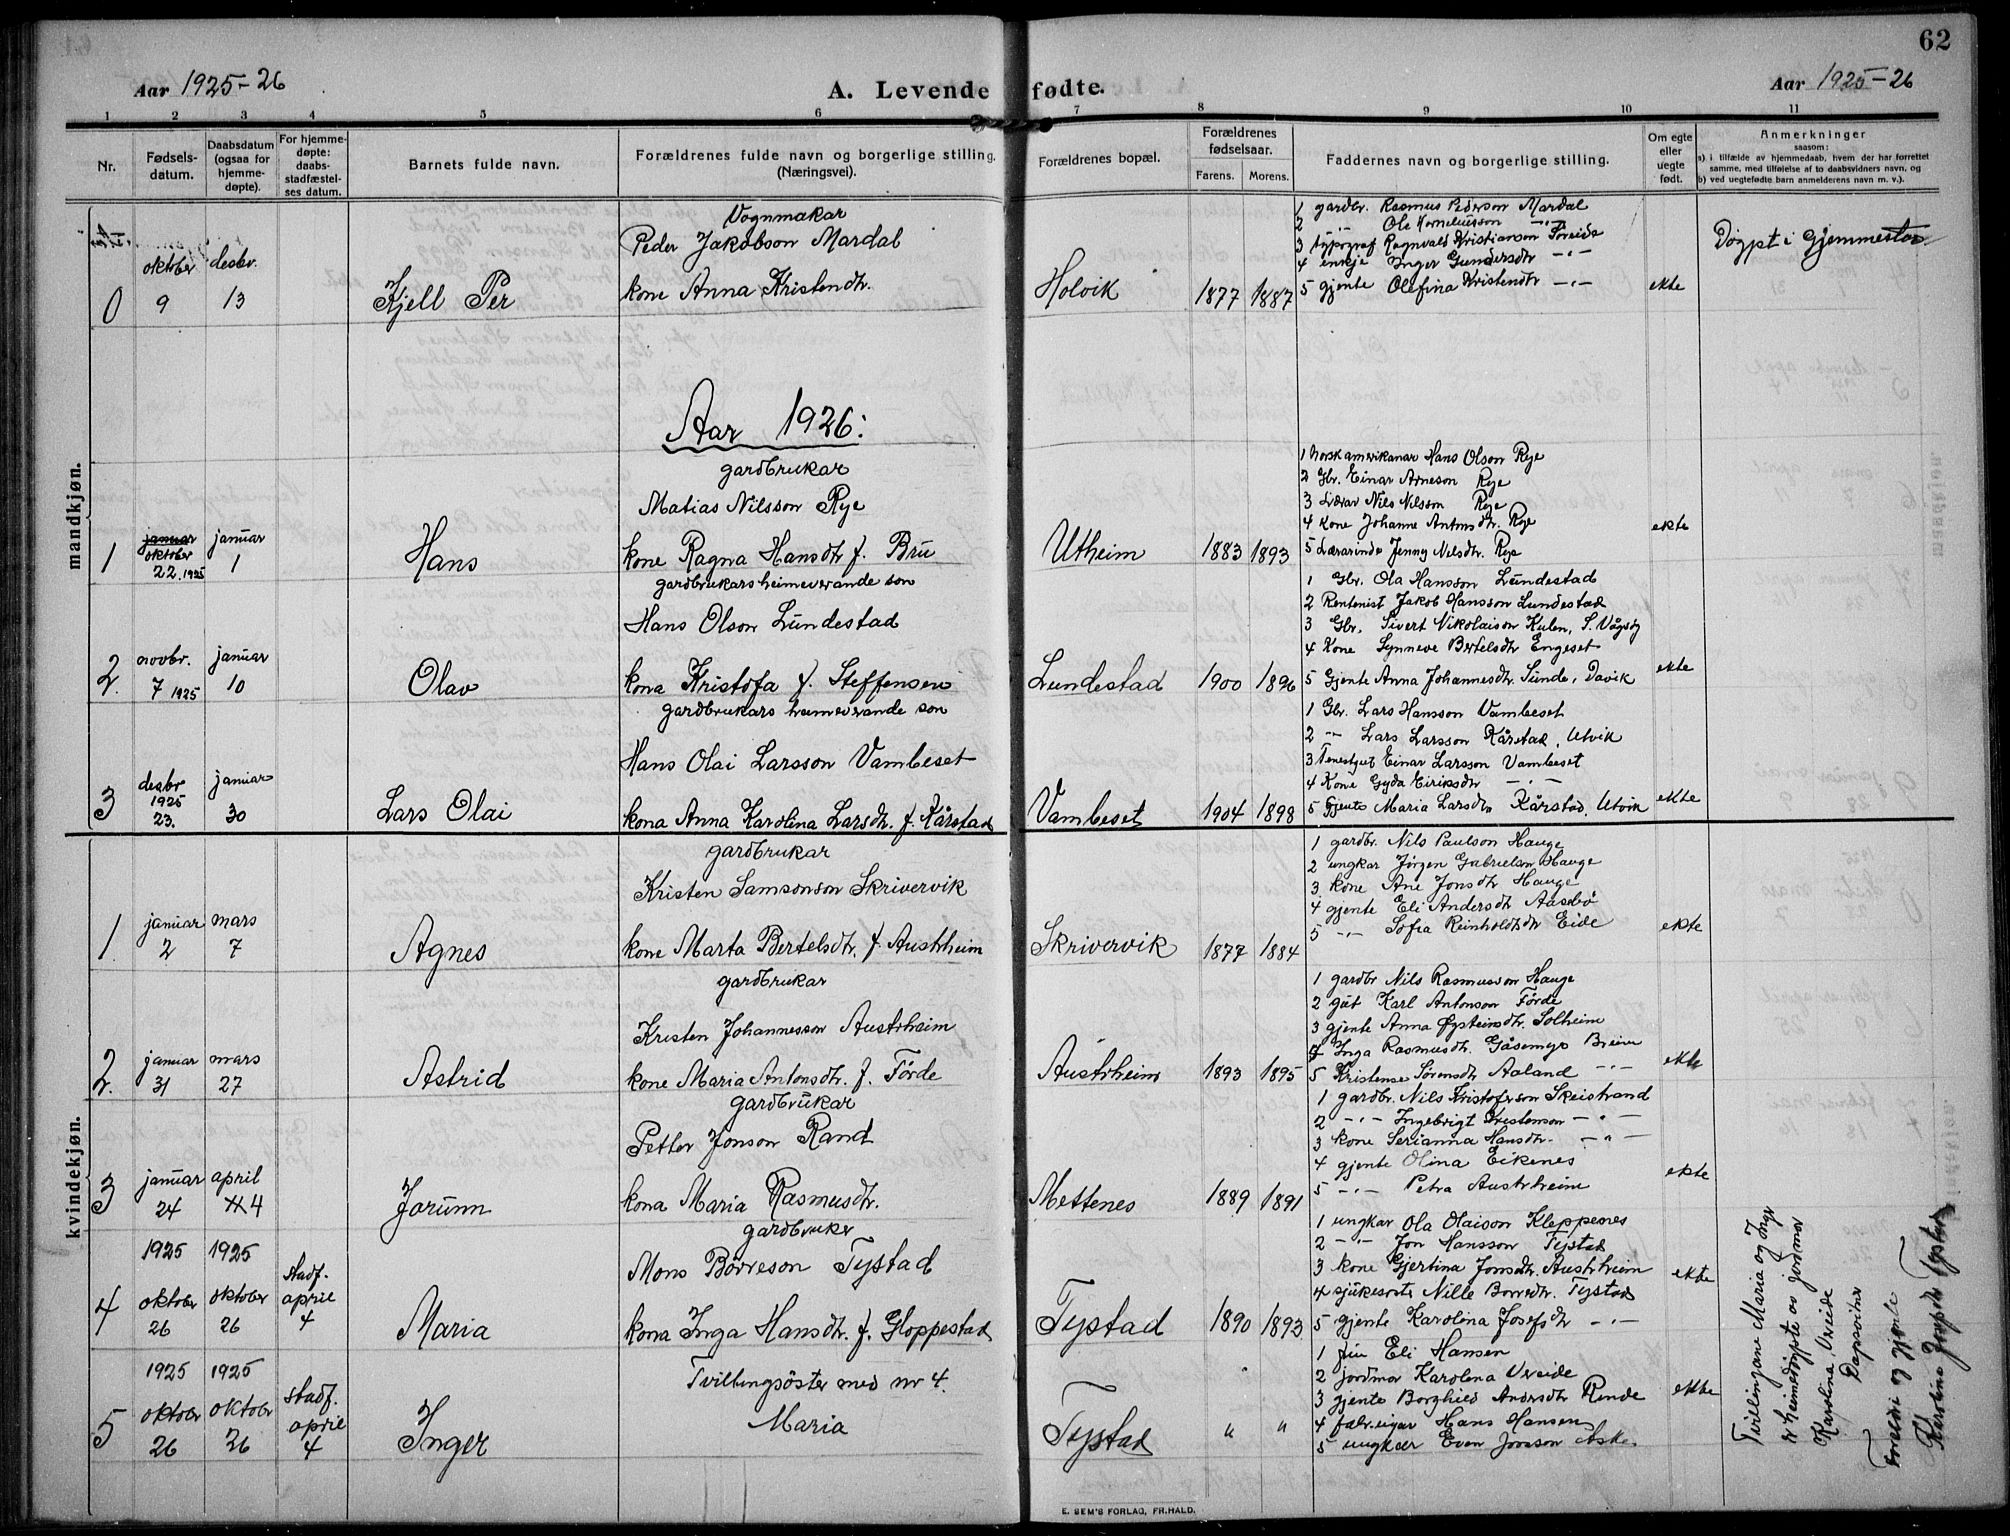 62
Aar 1925-26
A. Levende fødte.
Aar 1925-26
1 2 3 4 5 6 7 8 9 10 11
Nr.
Fødsels-
datum.
Daabsdatum
(ogsaa for
hjemme-
døpte).
For hjemme-
døpte:
daabs-
stadfæstel-
ses datum.
Barnets fulde navn.
Forældrenes fulde navn og borgerlige stilling.
(Næringsvei).
Forældrenes bopæl.
Forældrenes
fødselsaar.
Farens. Morens.
Faddernes navn og borgerlige stilling.
Om egte
eller
uegte
født.
Anmerkninger
saasom:
a) i tilfælde av hjemmedaab, hvem der har forrettet
samme, med tilføielse af to daabsvidners navn, og
b) ved uegtefødte barn anmelderens navn m. v.).
mandkjøn.
oktober desbr.
0 9 13
Kjell Per
Vognmakar
Peder Jakobson Mardal
kone Anna Kristendtr.
Holvik
1877 1887
1 gardbr. Rasmus Pederson Mardal
2 -"- Ole Korneliusson -"-
3 typograf Ragnvald Kristianson Foreide
4 enkje Inger Gundersdtr -"-
5 gjente Olefina Kristendtr -"-
ekte
Døypt i Gjemmestad
Aar 1926:
januar januar
oktober
1 22. 1925 1
Hans
gardbrukar
Matias Nilsson Rye
kone Ragna Hansdtr f. Bru
Utheim
1883 1893
1 Norskamerikanar Hans Olson Rye
2 Gbr. Einar Arneson Rye
3 Lærar Nils Nilsson Rye
4 Kone Johanne Antonsdtr. Rye
5 Lærarinde Jenny Nilsdtr. Rye
ekte
novbr. januar
2. 7 1925 10
Olav
gardbrukars heimeverande son
Hans Olson Lundestad
kona Kristofa f. Steffensen
Lundestad
1900 1896
1 Gbr. Ola Hansson Lundestad
2 Rentenist Jakob Hansson Lundestad
3 Gbr. Sivert Nikolaison Kulen, S. Vågsøy
4 Kone Synneve Bertelsdtr Engeset
5 Gjente Anna Johannesdtr. Sunde, Davik
ekte
desbr januar
1925
3 23. 30
Lars Olai
gardbrukars heimeverande son
Hans Olai Larsson Vambeset
kona Anna Karolina Larsdtr. f. Kårstad
Vambeset
1904 1898
1 Gbr. Lars Hansson Vambeset
2 -"- Lars Larsson Kårstad, Utvik
3 Tenestgut Einar Larsson Vambeset
4 Kone Gyda Eiriksdtr -"-
5 Gjente Maria Larsdtr Kårstad, Utvik
ekte
kvindekjøn.
januar mars
1 2 7
Agnes
gardbrukar
Kristen Samsonson Skrivervik
kone Marta Bertelsdtr. f. Austrheim
Skrivervik
1877 1884
1 gardbr. Nils Paulson Hauge
2 ungkar Jørgen Gabrielsn Hauge
3 kone Ane Jonsdtr Hauge
4 gjente Eli Andersdtr Aasebø
5 -"- Sofia Reinholdtsdtr Eide
ekte
januar mars
2. 31 27
Astrid
gardbrukar
Kristen Johannesson Austrheim
kone Maria Antonsdtr. f. Förde
Austrheim
1893 1895
1 gardbr Nils Rasmusson Hauge
2 gut Karl Antonson Förde
3 gjente Anna Øysteinsdtr. Solheim
4 Inga Rasmusdtr. Gåsemyr Breim
5 Kristense Sørensdtr Aaland -"-
ekte
januar april
3 24 4
Jorunn
gardbrukar
Petter Jonson Rand
kona Maria Rasmusdtr.
Mettenes
1889 1891
1 gardbr. Nils Kristoferson Skeistrand
2 -"- Ingebrigt Kristenson -"-
3 kone Serianna Hansdtr. -"-
4 gjente Olina Eikenes
5 -"- Petra Austrheim
ekte
1925 1925
oktober oktober
stadf.
april
4 26 26 4
Maria
gardbruker
Mons Börreson Tystad
kona Inga Hansdtr. f. Gloppestad
Tystad
1890 1893
1 ungkar Ola Olaison Kleppenes
2 -"- Jon Hansson Tystad
3 kone Gjertina Jonsdtr. Austrheim
4 sjukesøster Nille Borredtr. Tystad
5 gjente Karolina Josefsdtr -"-
ekte
1925 1925
oktobr oktobr
stadf.
april
5 26 26 4
Inger
Tvillingsöster med nr 4.
Maria
Tystad
" "
1 fru Eli Hansen
2 jordmor Karolina Vereide
3 gjente Borghild Andersdtr Rende
4 fabr.eigar Hans Hansen
5 ungkar Even Jonsson Aske.
ekte
Tvillingane Maria og Inger
er heimedöypte av jordmor
Karolina Vereide
Dåpsvitner
Foreldre og gjente
Karolina Josefsdtr Tystad
E. SEM'S FORLAG, FR.HALD.